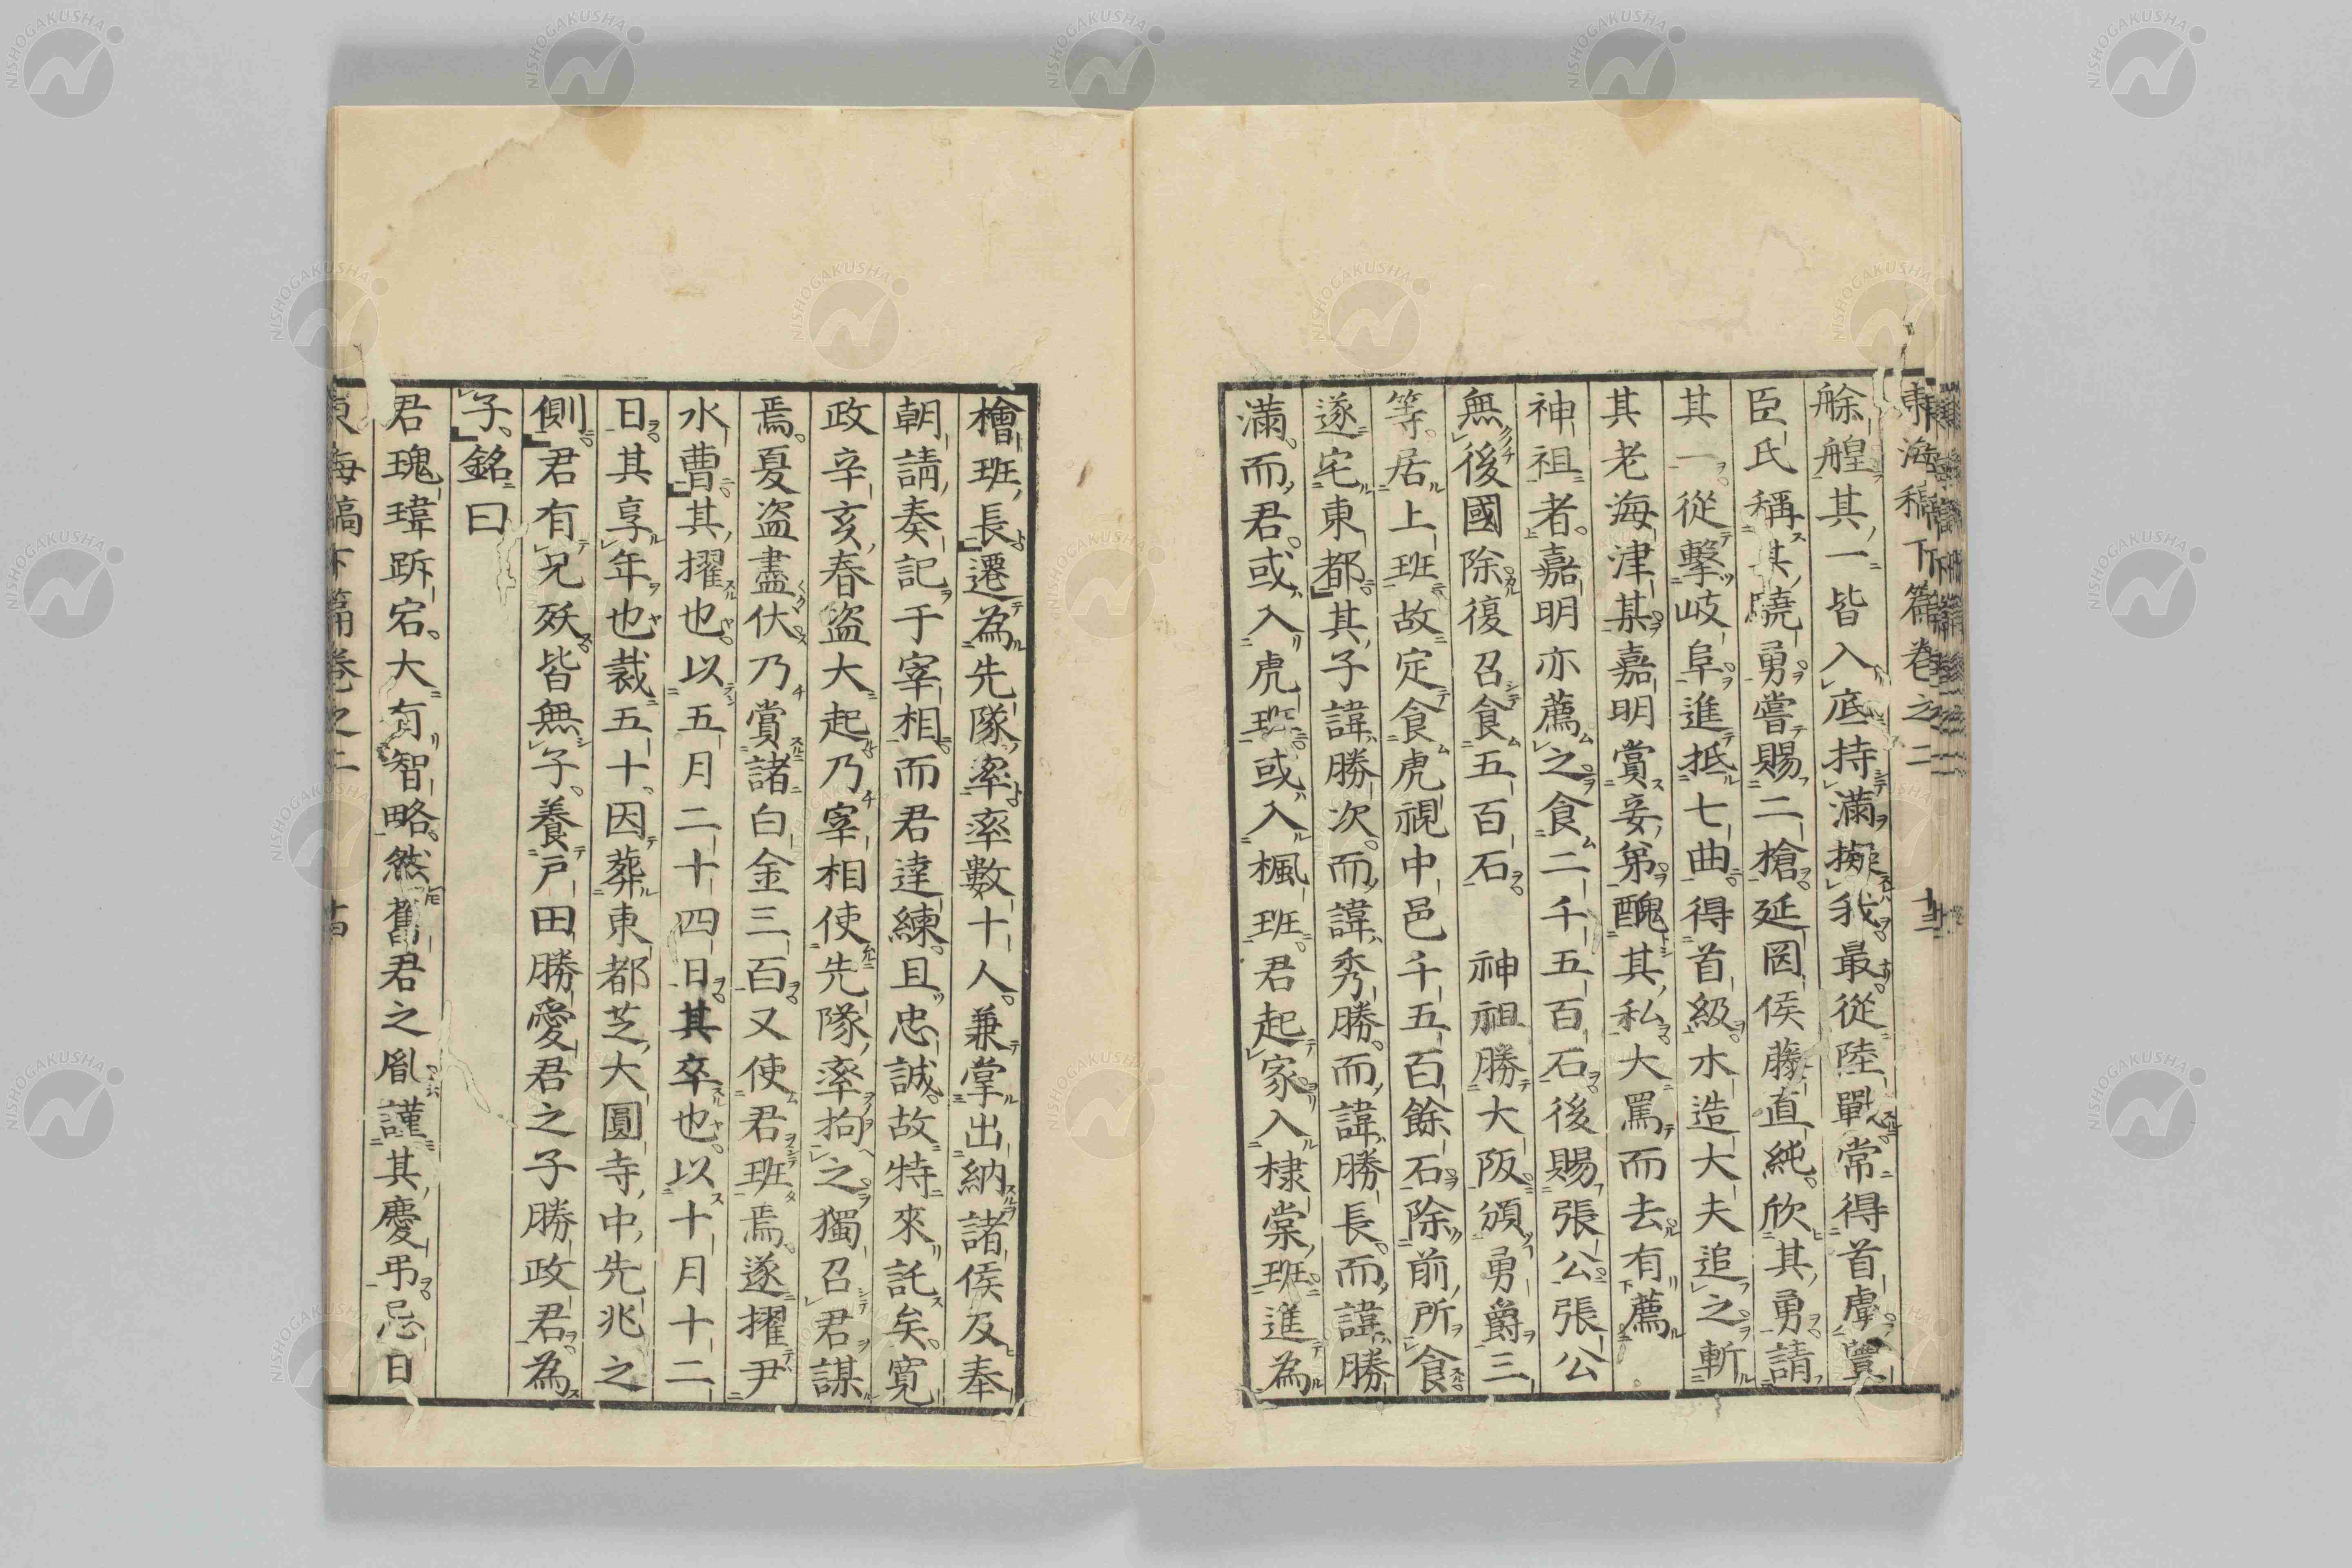 東海稿下篇卷之二 十三
艅艎其一皆入底持滿擬我最從陸戰常得首虜實
臣氏稱其驍勇嘗賜二槍延岡侯藤直純欣其勇請
其一從擊岐阜進抵七曲得首級水造大夫追之斬
其老海津某嘉明賞妾弟醜其私大罵而去有薦
神祖者嘉明亦薦之食二千五百石後賜張公張公
無後國除復召食五百石 神祖勝大阪頒勇爵三
等居上班故定食虎視中邑千五百餘石除前所食
遂宅東都其子諱勝次而諱秀勝而諱勝長而諱勝
滿而君或入虎班或入楓班君起家入棣棠班進為
檜班長遷為先隊率率數十人兼掌出納諸侯及奉
朝請奏記于宰相而君達練且忠誠故特來託矣寬
政辛亥春盜大起乃宰相使先隊率拘之獨召君謀
焉夏盜盡伏乃賞諸白金三百又使君班焉遂擢尹
水曹其擢也以五月二十四日其卒也以十月十二
日其享年也裁五十因葬東都芝大圓寺中先兆之
側君有兄殀皆無子養戶田勝愛君之子勝政君為
子銘曰
君瑰瑋跅宕大有智略然舊君之胤謹其慶弔忌日
東海稿下篇卷之二 十四
NISHOGAKUSHA